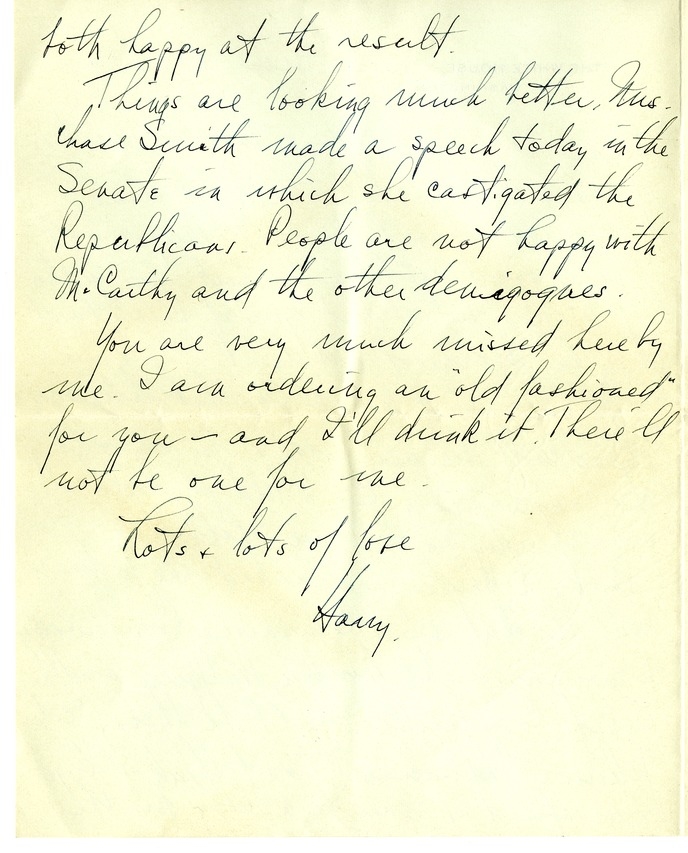 both happy at the result.
Things are looking much better. Mrs.
Chase Smith made a speech today in the
Senate in which she castigated the
Republicans. People are not happy with
McCarthy and the other demigogues.
You are very much missed here by
me. I am ordering an "old fashioned"
for you — and I'll drink it. There'll
not be one for me.
Lots & lots of love
Harry.